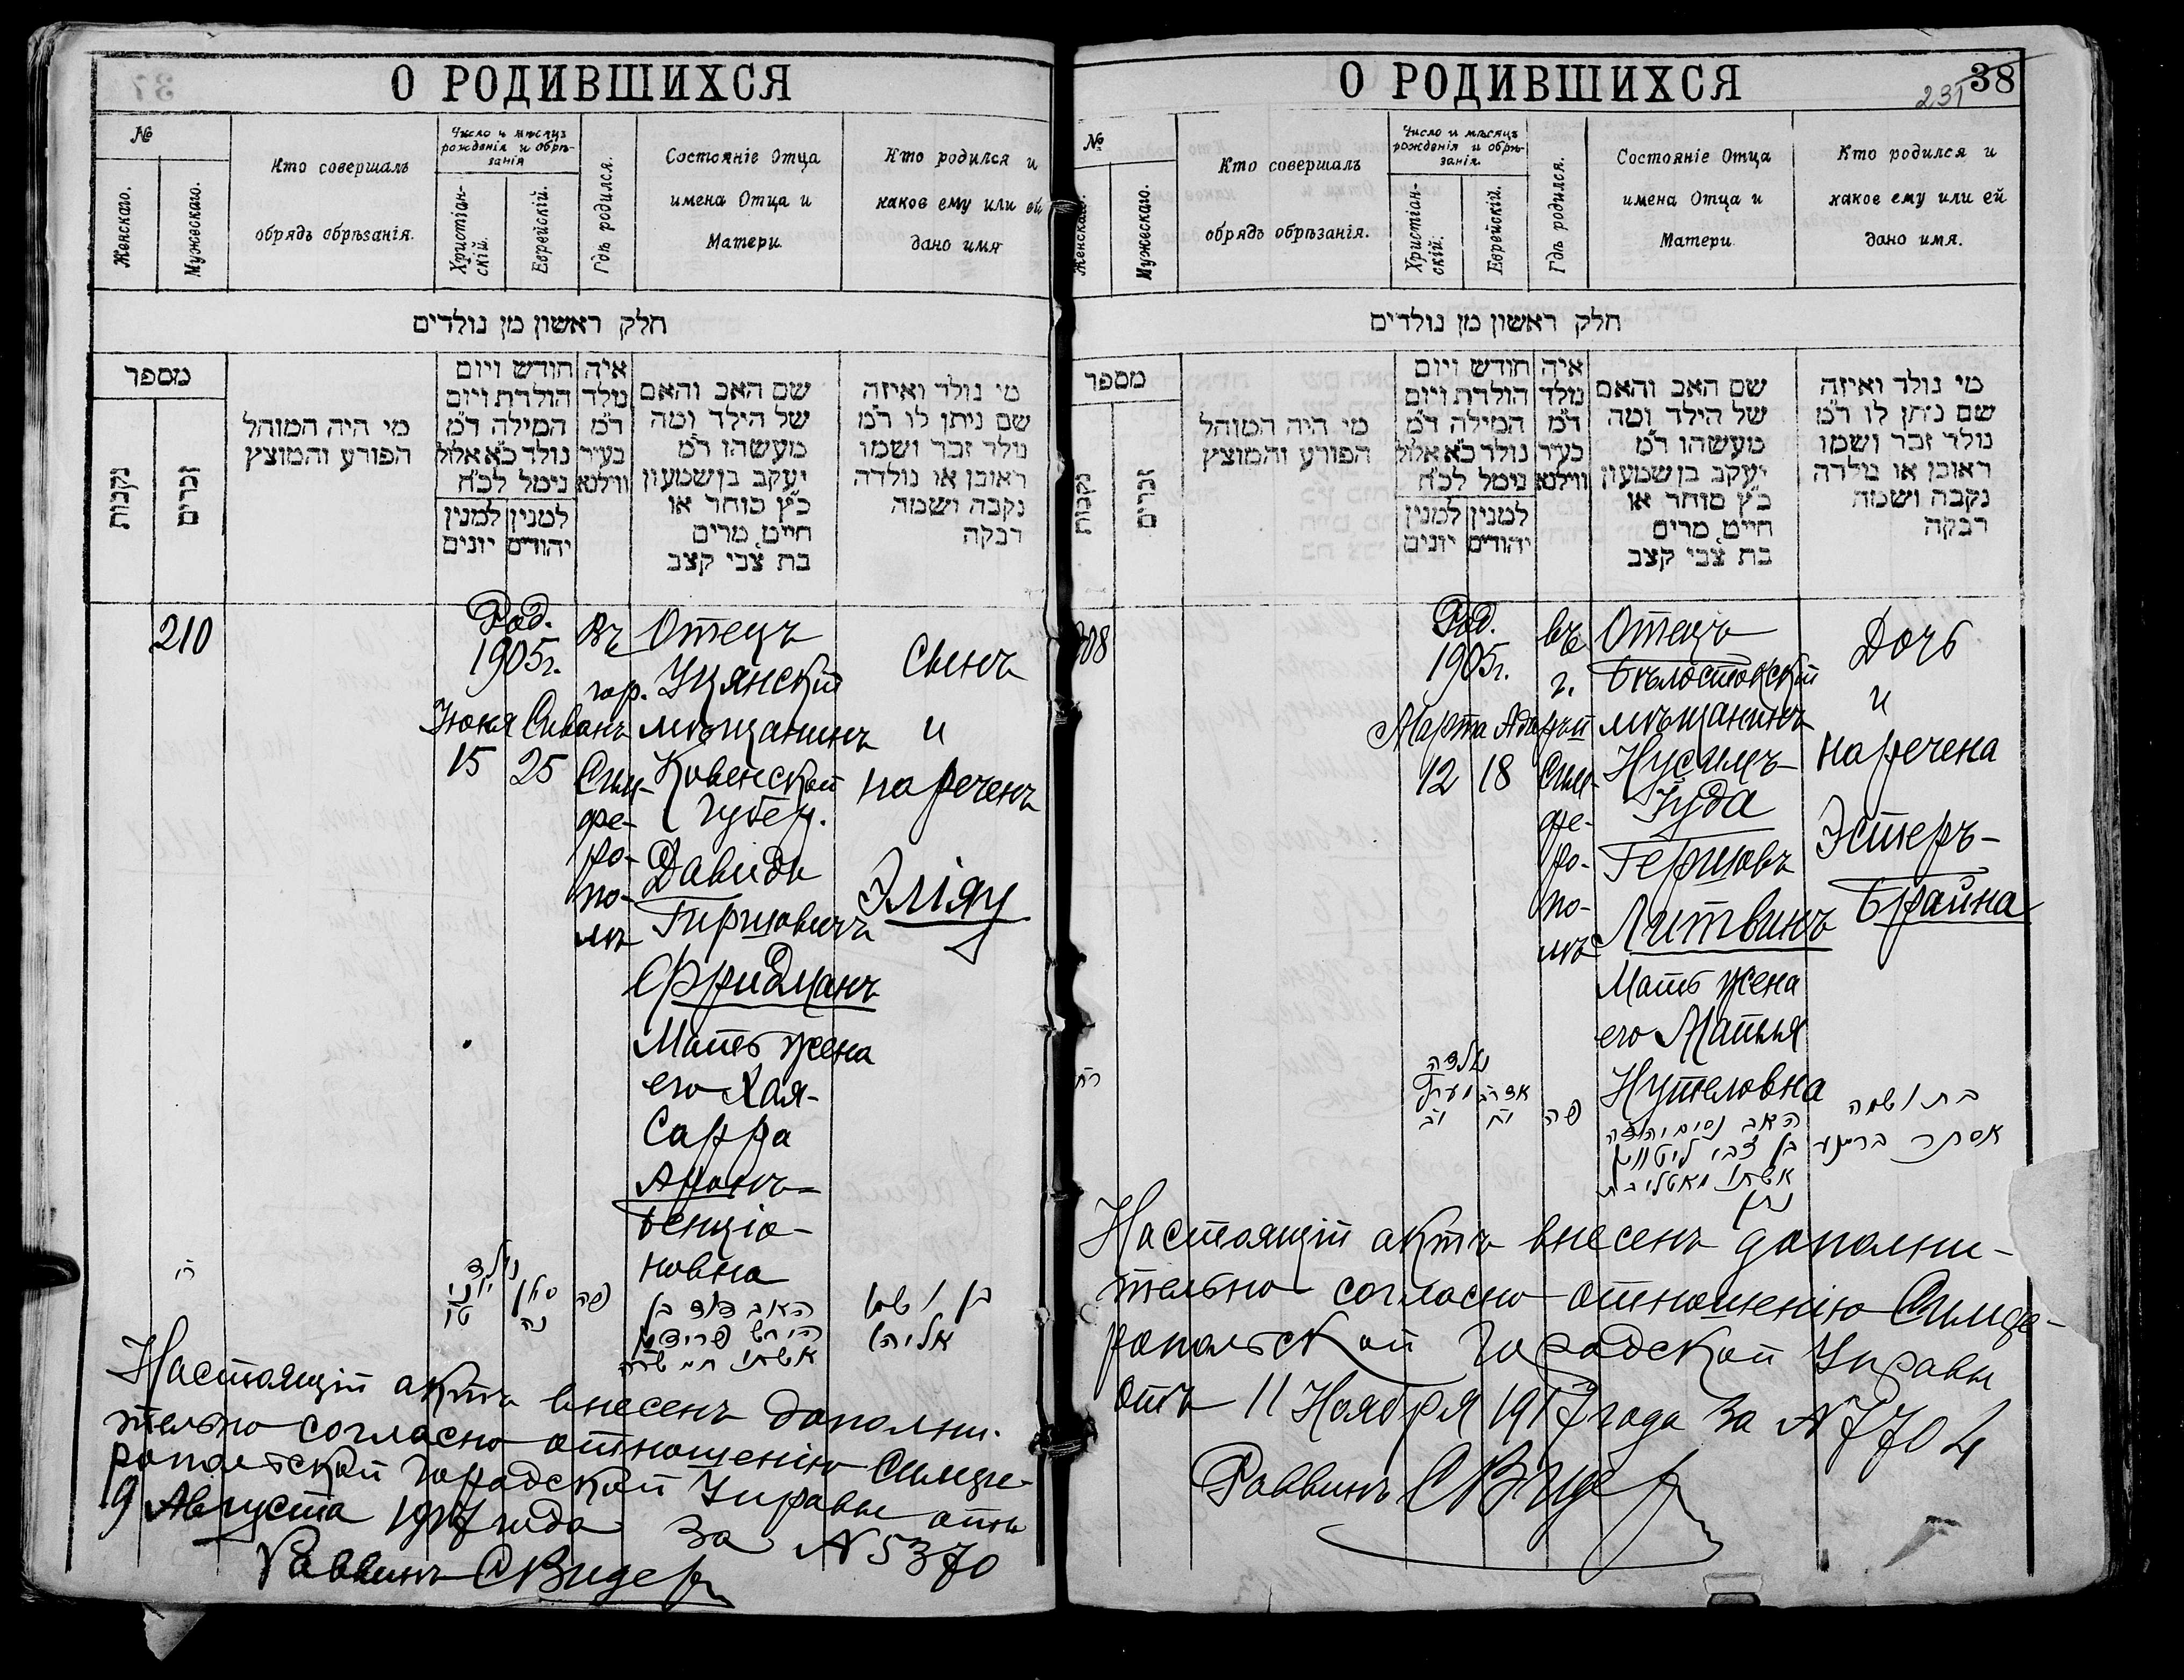 О РОДИВШИХСЯ
№
Женскаго.
Мужескаго.
Кто совершалъ
обрядъ обрѣзанія.
Число и мѣсяцъ
рожденія и обрѣ-
занія
Христіан-
скій.
Еврейскій.
Гдѣ родился.
Состояніе Отца
имена Отца и
Матери.
Кто родился и
какое ему или ей
дано имя
חלק ראשון מן נולדים
מספר
נקבות
זכרים
מי היה המוהל
הפורע והמוצץ
חודש ויום
הולדת ויום
המילה ד״מ
נולד כ״א אלול
נימל לכ״ח
למנין
יונים
למנין
יהודים
איה
נולד
ד״מ
בעיר
ווילנא
שם האב והאם
של הילד ומה
מעשהו ד״מ
יעקב בן שמעון
כ״ץ סוחר או
חייט, מרים
בת צבי קצב
מי נולד ואיזה
שם ניתן לו ד״מ
נולד זכר ושמו
ראובן או נולדה
נקבה ושמה
רבקה
210
Род.
1905г.
Июня Сиванъ
15 25
Въ
гор.
Сим-
фе-
ро-
по-
лѣ
Отецъ
Уцянскій
мѣщанинъ
Ковенской
губер.
Давидъ
Гиршовичъ
Фридманъ
Мать жена
его Хая-
Сарра
Аронъ-
Бенціо-
новна
Сынъ
и
нареченъ
Эліяу
נולד
יוני
טו
סיון
כה
פה
האב דוד בן
הירש פרידמן
אשתו חי׳ שרה
בן ושמו
אליהו
Настоящій актъ внесенъ дополни-
тельно согласно отношенію Симфе-
ропольской Городской Управы отъ
9 Августа 1917 года за N 5370
Раввинъ СВидер
О РОДИВШИХСЯ
231
38
№
Женскаго.
Мужескаго.
Кто совершалъ
обрядъ обрѣзанія.
Число и мѣсяцъ
рожденія и обрѣ-
занія.
Христіан-
скій.
Еврейскій.
Гдѣ родился.
Состояніе Отца
имена Отца и
Матери.
Кто родился и
какое ему или ей
дано имя.
חלק ראשון מן נולדים
מספר
נקבות
זכרים
מי היה המוהל
הפורע והמוצץ
חודש ויום
הולדת ויום
המילה ד״מ
נולד כ״א אלול
נימל לכ״ח
למנין
יונים
למנין
יהודים
איה
נולד
ד״מ
בעיר
ווילנא
שם האב והאם
של הילד ומה
מעשהו ד״מ
יעקב בן שמעון
כ״ץ סוחר או
חייט, מרים
בת צבי קצב
מי נולד ואיזה
שם ניתן לו ד״מ
נולד זכר ושמו
ראובן או נולדה
נקבה ושמה
רבקה
208
Род.
1905г.
Марта
12 18
въ
г.
Сим-
фе-
ро-
по-
лѣ
Отецъ
Бѣлостокскій
мѣщанинъ
Нусимъ
Іуда
Гершовъ
Литвинъ
Мать жена
его Матля
Нутеловна
Дочь
и
наречена
Эстеръ-
Брайна
נולדה
פה
האב נסים יהודה
בן צבי ליטווין
אשתו מאטלי בת
בת ושמה
אסתר בריינע
Настоящій актъ внесенъ дополни-
тельно согласно отношенію Симфе-
ропольской Городской Управы
отъ 11 Ноября 1917 года за N 7704
Раввинъ СВидер